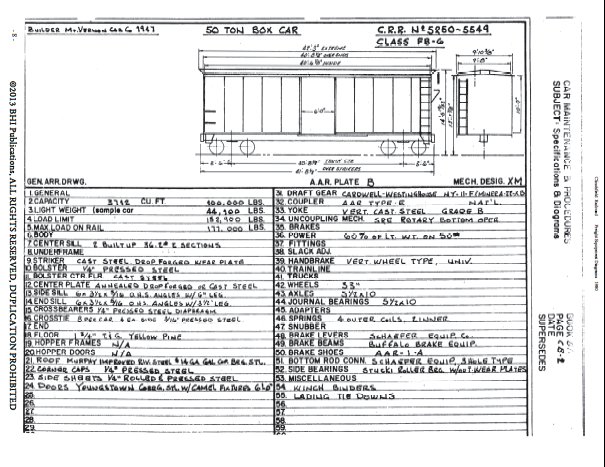 BUILDER MT. VERNON CAR CO 1947
50 TON BOX CAR
C.R.R. Nº 5250-5549
CLASS PB-G
GEN.ARR.DRWG.
A.A.R. PLATE B
MECH. DESIG. XM
1. GENERAL
2. CAPACITY 3712 CU. FT. 100,000 LBS.
3. LIGHT WEIGHT (sample car 44,100 LBS.
4. LOAD LIMIT LBS.
5. MAX LOAD ON RAIL 177,000 LBS.
6. BODY
7. CENTER SILL 2 BUILT UP 36.2# Z SECTIONS
8. UNDERFRAME
9. STRIKER CAST STEEL DROP FORGED WEAR PLATE
10. BOLSTER 1/4" PRESSED STEEL
11. BOLSTER CTR. FLR CAST STEEL
12. CENTER PLATE ANNEALED DROP FORGED OR CAST STEEL
13. SIDE SILL ANGLES W/6" LEG.
14. END SILL ANGLES W/3½" LEG.
15. CROSSBEARERS 1/4" PRESSED STEEL DIAPHRAGM
16. CROSSTIE PRESSED STEEL
17. END
18. FLOOR 1 3/4" T&G YELLOW PINE
19. HOPPER FRAMES N/A
20. HOPPER DOORS N/A
21. ROOF MURPHY IMPROVED RIV. STEEL #14 GA. GAL. COR. BRG. STL.
22. CORNER CAPS 1/4" PRESSED STEEL
23. SIDE SHEETS 1/4" ROLLED & PRESSED STEEL
24. DOORS YOUNGSTOWN CORRG. STL. W/CAMEL FIXTURES 6'0"
25.
26.
27.
28.
29.
31. DRAFT GEAR CARDWELL-WESTINGHOUSE
32. COUPLER AAR TYPE E NAT'L.
33. YOKE VERT. CAST STEEL GRADE B
34. UNCOUPLING MECH. SRE ROTARY BOTTOM OPER
35. BRAKES
36. POWER 60% OF LT. WT. ON 50#
37. FITTINGS
38. SLACK ADJ.
39. HANDBRAKE VERT. WHEEL TYPE, UNIV.
40. TRAINLINE
41. TRUCKS
42. WHEELS 33"
43. AXLES 5½X10
44. JOURNAL BEARINGS 5½X10
45. ADAPTERS
46. SPRINGS 4 OUTER COILS, 2 INNER
47. SNUBBER
48. BRAKE LEVERS SCHAEFER EQUIP. CO.
49. BRAKE BEAMS BUFFALO BRAKE EQUIP.
50. BRAKE SHOES AAR-1-A
51. BOTTOM ROD CONN. SCHAEFER EQUIP. 3 HOLE TYPE
52. SIDE BEARINGS STUCKI ROLLER BRG. W/OUT WEAR PLATES
53. MISCELLANEOUS
54. WINCH BINDERS
55. LADING TIE DOWNS
56.
57.
58.
59.
CAR MAINTENANCE & PROCEDURES
SUBJECT- Specifications & Diagrams
DATE
SUPERSEDES
©2013 BHI Publications, ALL RIGHTS RESERVED, DUPLICATION PROHIBITED